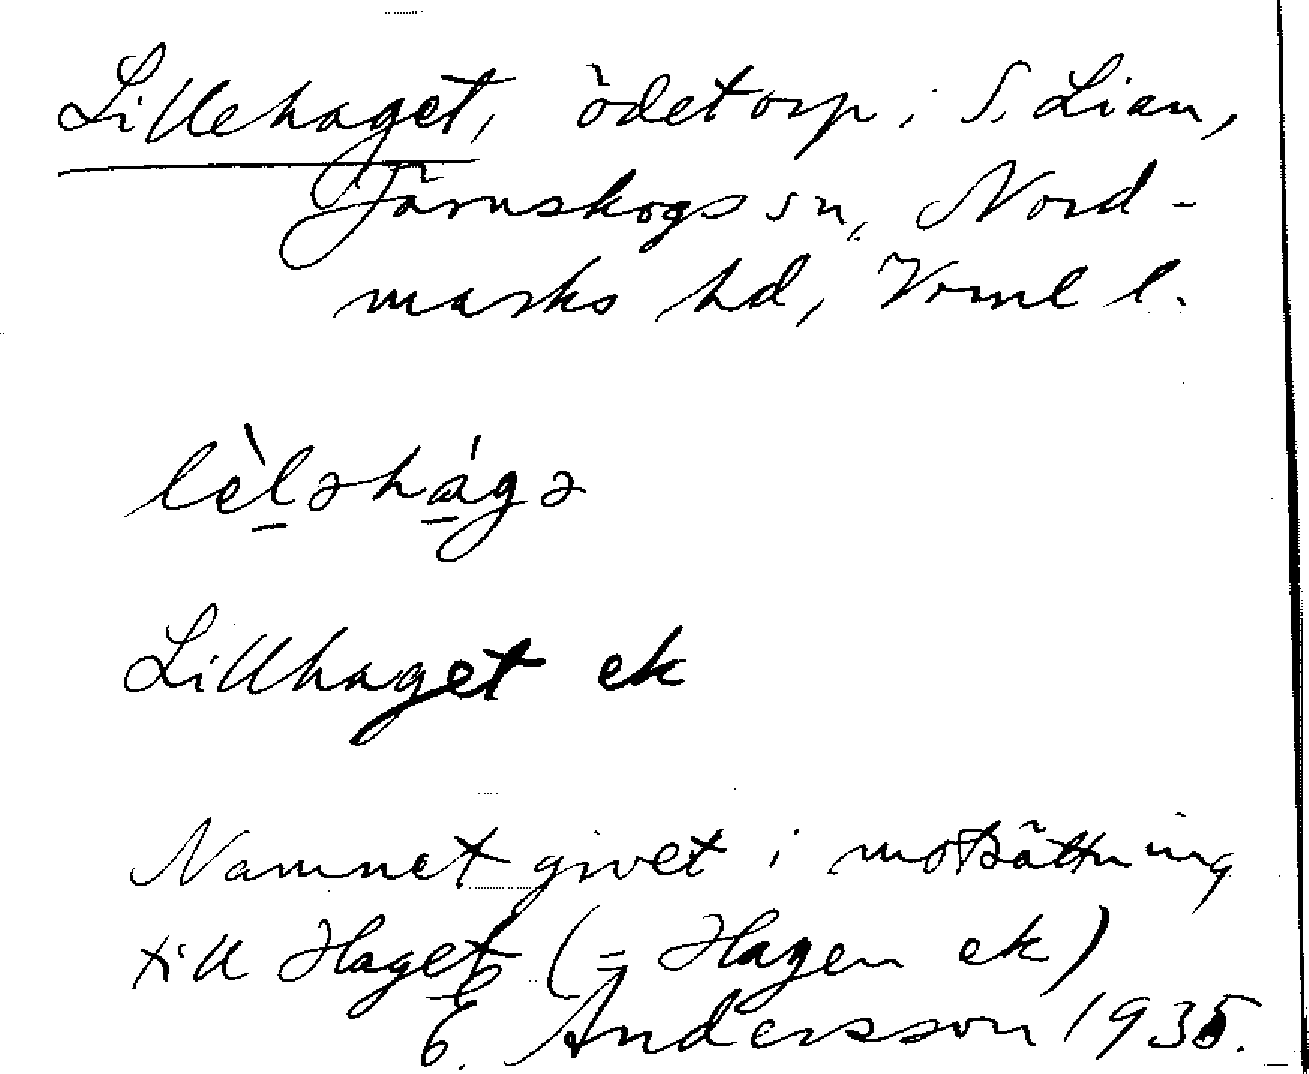 Lillehaget, ödetorp i S. Lian,
Järnskogs sn, Nord-
marks hd, Vrml l.
lèləhágə
Lillhaget ek
Namnet givet i motsättning
till Haget (= Hagen ek)
E. Andersson 1935.